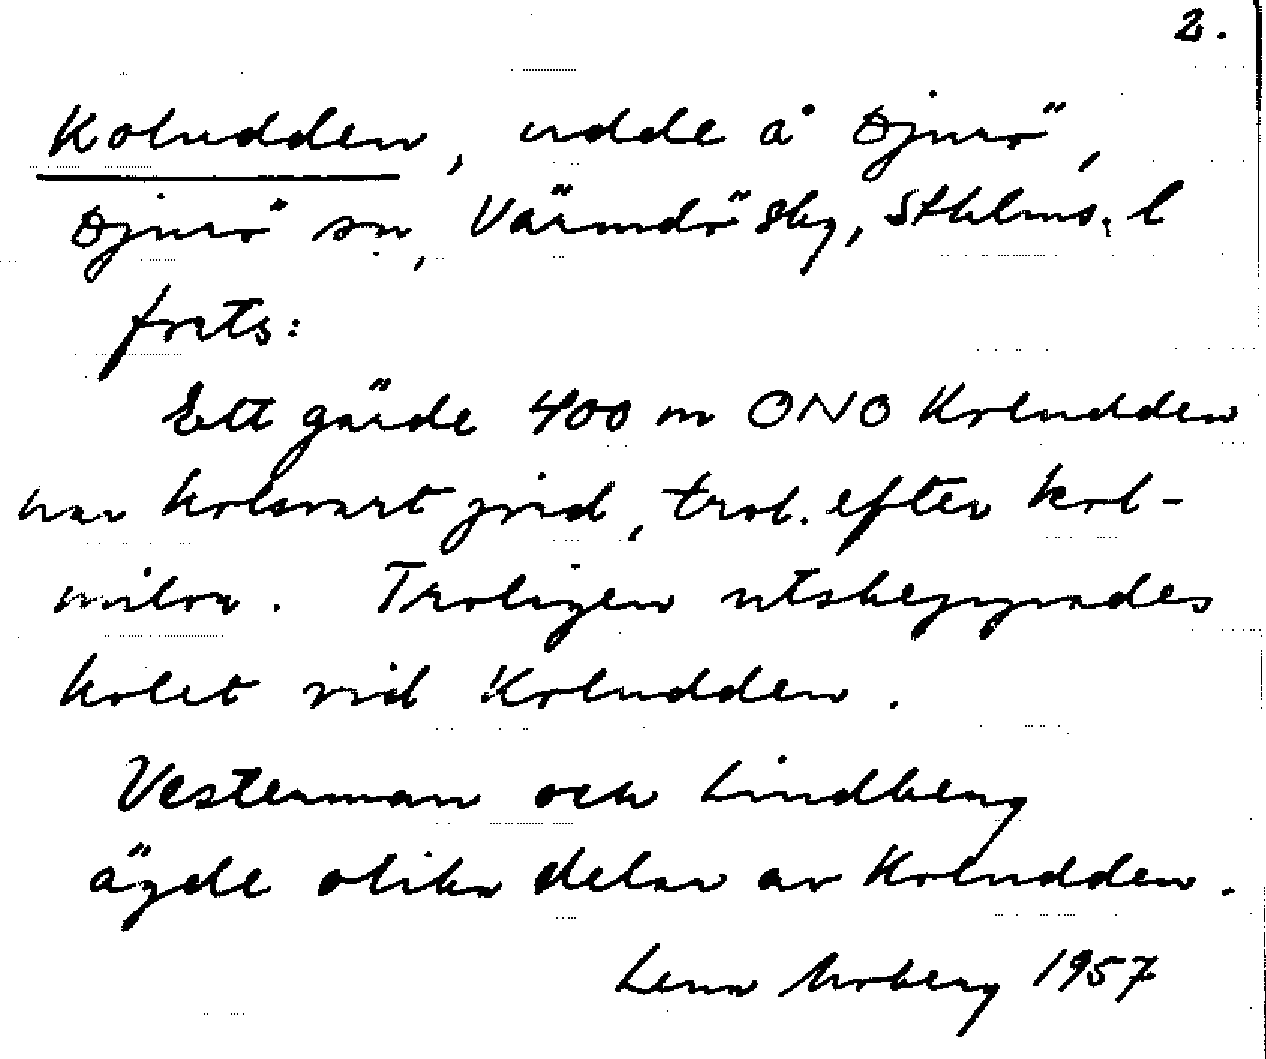 2.
Koludden, udde å Djurö,
Djurö sn, Värmdö Skg, Sthlms. l
forts:
Ett gärde 400 m ONO Koludden
har kolsvart jord, trol. efter kol-
milor. Troligen utskeppades
kolet vid Koludden.
Vesterman och Lindberg
ägde olika delar av Koludden.
Lena Moberg 1957